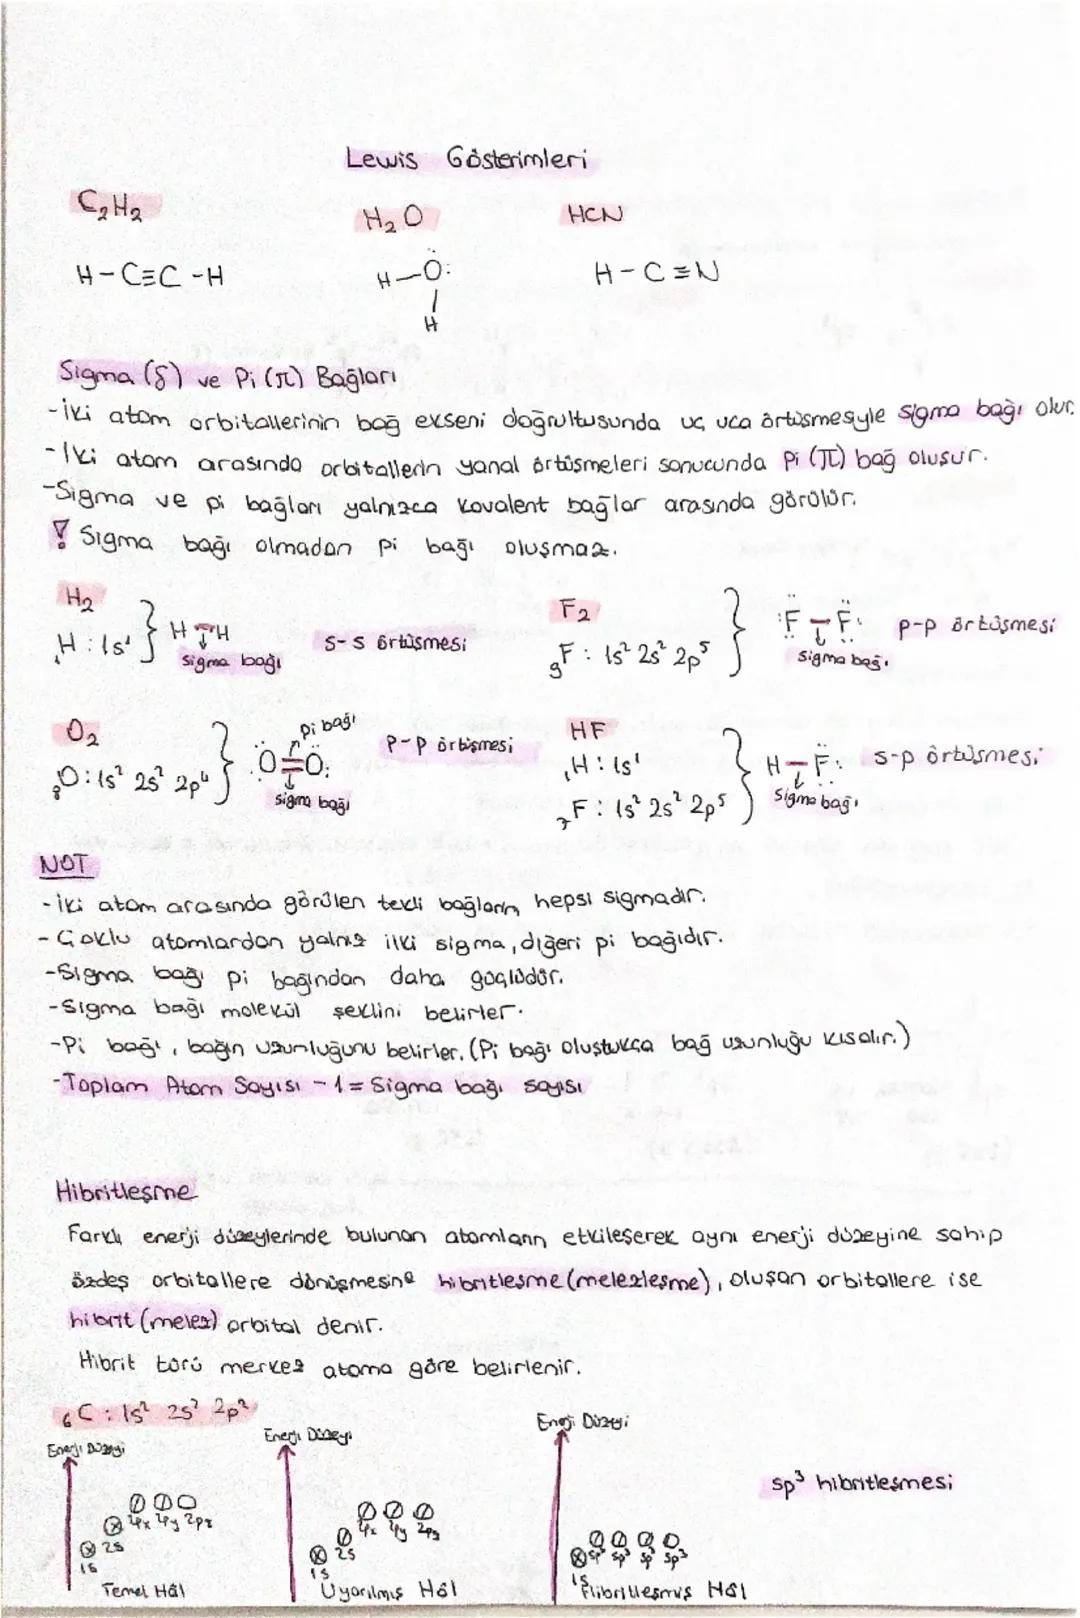 Lewis Gösterimleri
C₂H₂ H₂O HCN
H-C≡C-H H-Ö: H-C≡N
H
Sigma (δ) ve Pi (π) Bağları
-İki atom orbitallerinin bağ ekseni doğrultusunda uç uca örtüşmesiyle sigma bağı olur.
-İki atom arasında orbitallerin yanal örtüşmeleri sonucunda Pi (π) bağ oluşur.
-Sigma ve pi bağları yalnızca kovalent bağlar arasında görülür.
! Sigma bağı olmadan pi bağı oluşmaz.
H₂ F₂
₁H: 1s¹ } H-H s-s örtüşmesi ₉F: 1s² 2s² 2p⁵ } :F̈-F̈: p-p örtüşmesi
sigma bağı sigma bağı
O₂ pi bağı HF
₈O: 1s² 2s² 2p⁴ } Ö=Ö p-p örtüşmesi ₁H: 1s¹ } H-F̈: s-p örtüşmesi
sigma bağı ₇F: 1s² 2s² 2p⁵ sigma bağı
NOT
-İki atom arasında görülen tekli bağların hepsi sigmadır.
-Çoklu atomlardan yalnız ilki sigma, diğeri pi bağıdır.
-Sigma bağı pi bağından daha güçlüdür.
-Sigma bağı molekül şeklini belirler.
-Pi bağı, bağın uzunluğunu belirler. (Pi bağı oluştukça bağ uzunluğu kısalır.)
-Toplam Atom Sayısı -1 = Sigma bağı sayısı
Hibritleşme
Farklı enerji düzeylerinde bulunan atomların etkileşerek aynı enerji düzeyine sahip
özdeş orbitallere dönüşmesine hibritleşme (melezleşme), oluşan orbitallere ise
hibrit (melez) orbital denir.
Hibrit türü merkez atoma göre belirlenir.
₆C: 1s² 2s² 2p²
Enerji Düzeyi Enerji Düzeyi Enerji Düzeyi
sp³ hibritleşmesi
2px 2py 2pz 2px 2py 2pz
2s 2s sp³ sp³ sp³ sp³
1s 1s 1s
Temel Hâl Uyarılmış Hâl Hibritleşmiş Hâl